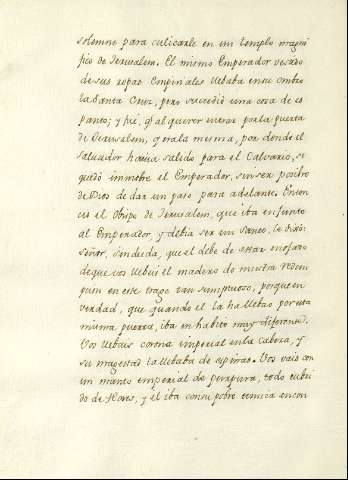 solemne para colicarle en un templo magni
fico de Jerusalem. El mismo Emperador vesado
de sus ropas Emperiales llebaba en su ombro
la Santa Cruz, pero sucedió una cosa de es
panto; y fué, q.e al querer entrar por la puerta
de Jerusalem, q.e era la misma, por donde el
Salvador havia salido para el Calvario, se
quedó immoble el Emperador, sin ser posible
de Dios de dar un paso para adelante. Enton
ces el Obispo de Jerusalem, que iba en junto
al Emperador, y debia ser un Santo, le dixo:
Señor, sin duda, que el debe de estar enojado
de que vos llebeis el madero de nuestra reden
cion en este trage tan sumptuoso, porque en
verdad, que quando el la llebaba por esta
misma puerta, iba en habito muy diferente.
Vos llebais corona imperial en la cabeza, y
su magestad la llebaba de espinas. Vos vais con
un manto emperial de purpura, todo cubri
do de flores, y él iba con su pobre tunica encon